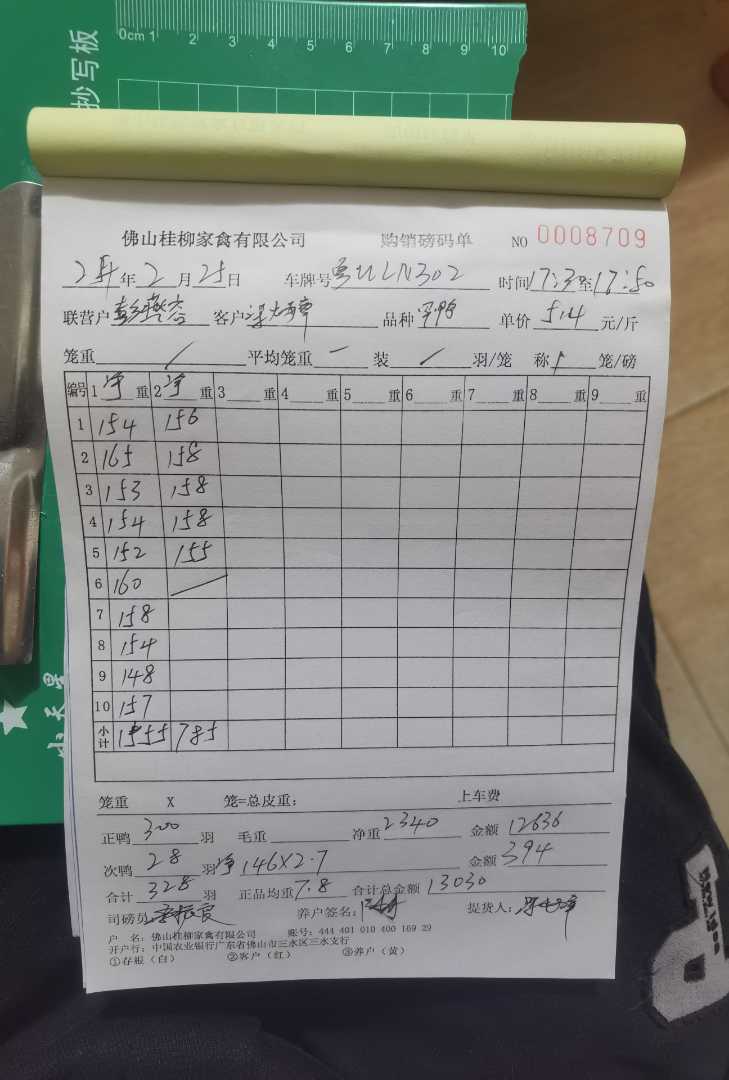 抄写板
0cm 1 2 3 4 5 6 7 8 9 10
佛山桂柳家禽有限公司 购销磅码单 NO 0008709
年 2 月 25 日 车牌号 时间 17:3 至 17:50
联营户 彭燕容 客户 品种 单价 5.4 元/斤
笼重 / 平均笼重 一 装 / 羽/笼 称 笼/磅
编号 1 净 重 2 净 重 3 重 4 重 5 重 6 重 7 重 8 重 9 重
1 154 156
2 165 158
3 153 158
4 154 158
5 152 155
6 160
7 158
8 154
9 148
10 157
小计 1555 785
笼重 X 笼=总皮重: 上车费
正鸭 300 羽 毛重 净重 2340 金额 12636
次鸭 28 羽 净 146X2.7 金额 394
合计 328 羽 正品均重 7.8 合计总金额 13030
司磅员 养户签名: 提货人:
户 名: 佛山桂柳家禽有限公司 账号: 444 401 010 400 169 29
开户行: 中国农业银行广东省佛山市三水区三水支行
①存根(白) ②客户(红) ③养户(黄)